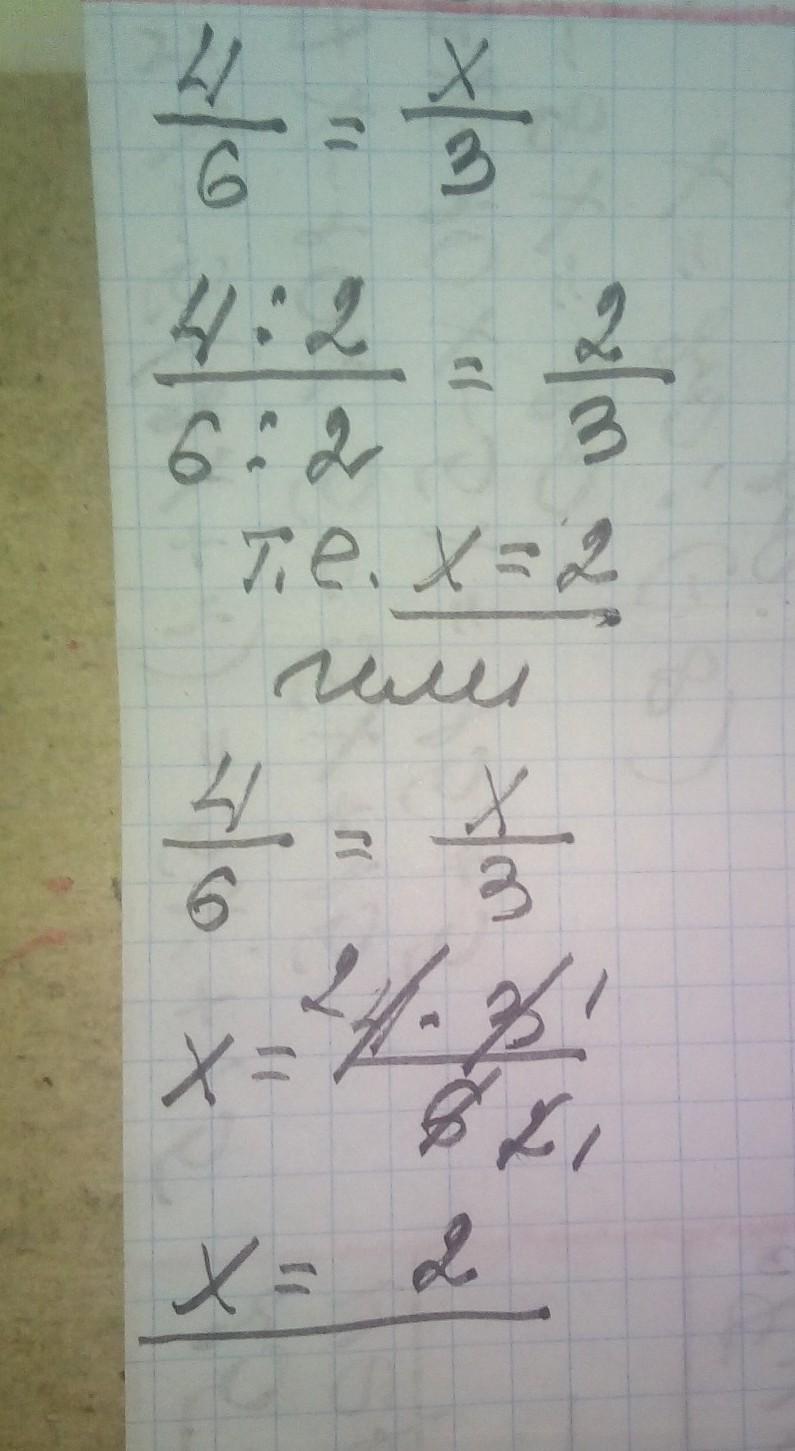 4/6 = x/3
4:2/6:2 = 2/3
т.е. x = 2
или
4/6 = x/3
x = 2 4 · 3 1 / 6 2 1
x = 2